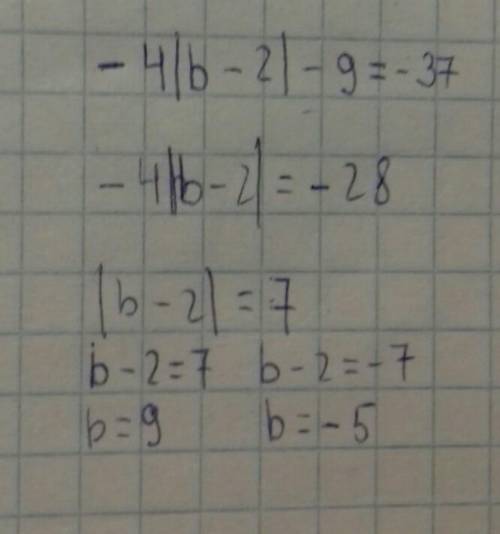 - 4|b - 2| - 9 = - 37
- 4|b - 2| = - 28
|b - 2| = 7
b - 2 = 7 b - 2 = - 7
b = 9 b = - 5